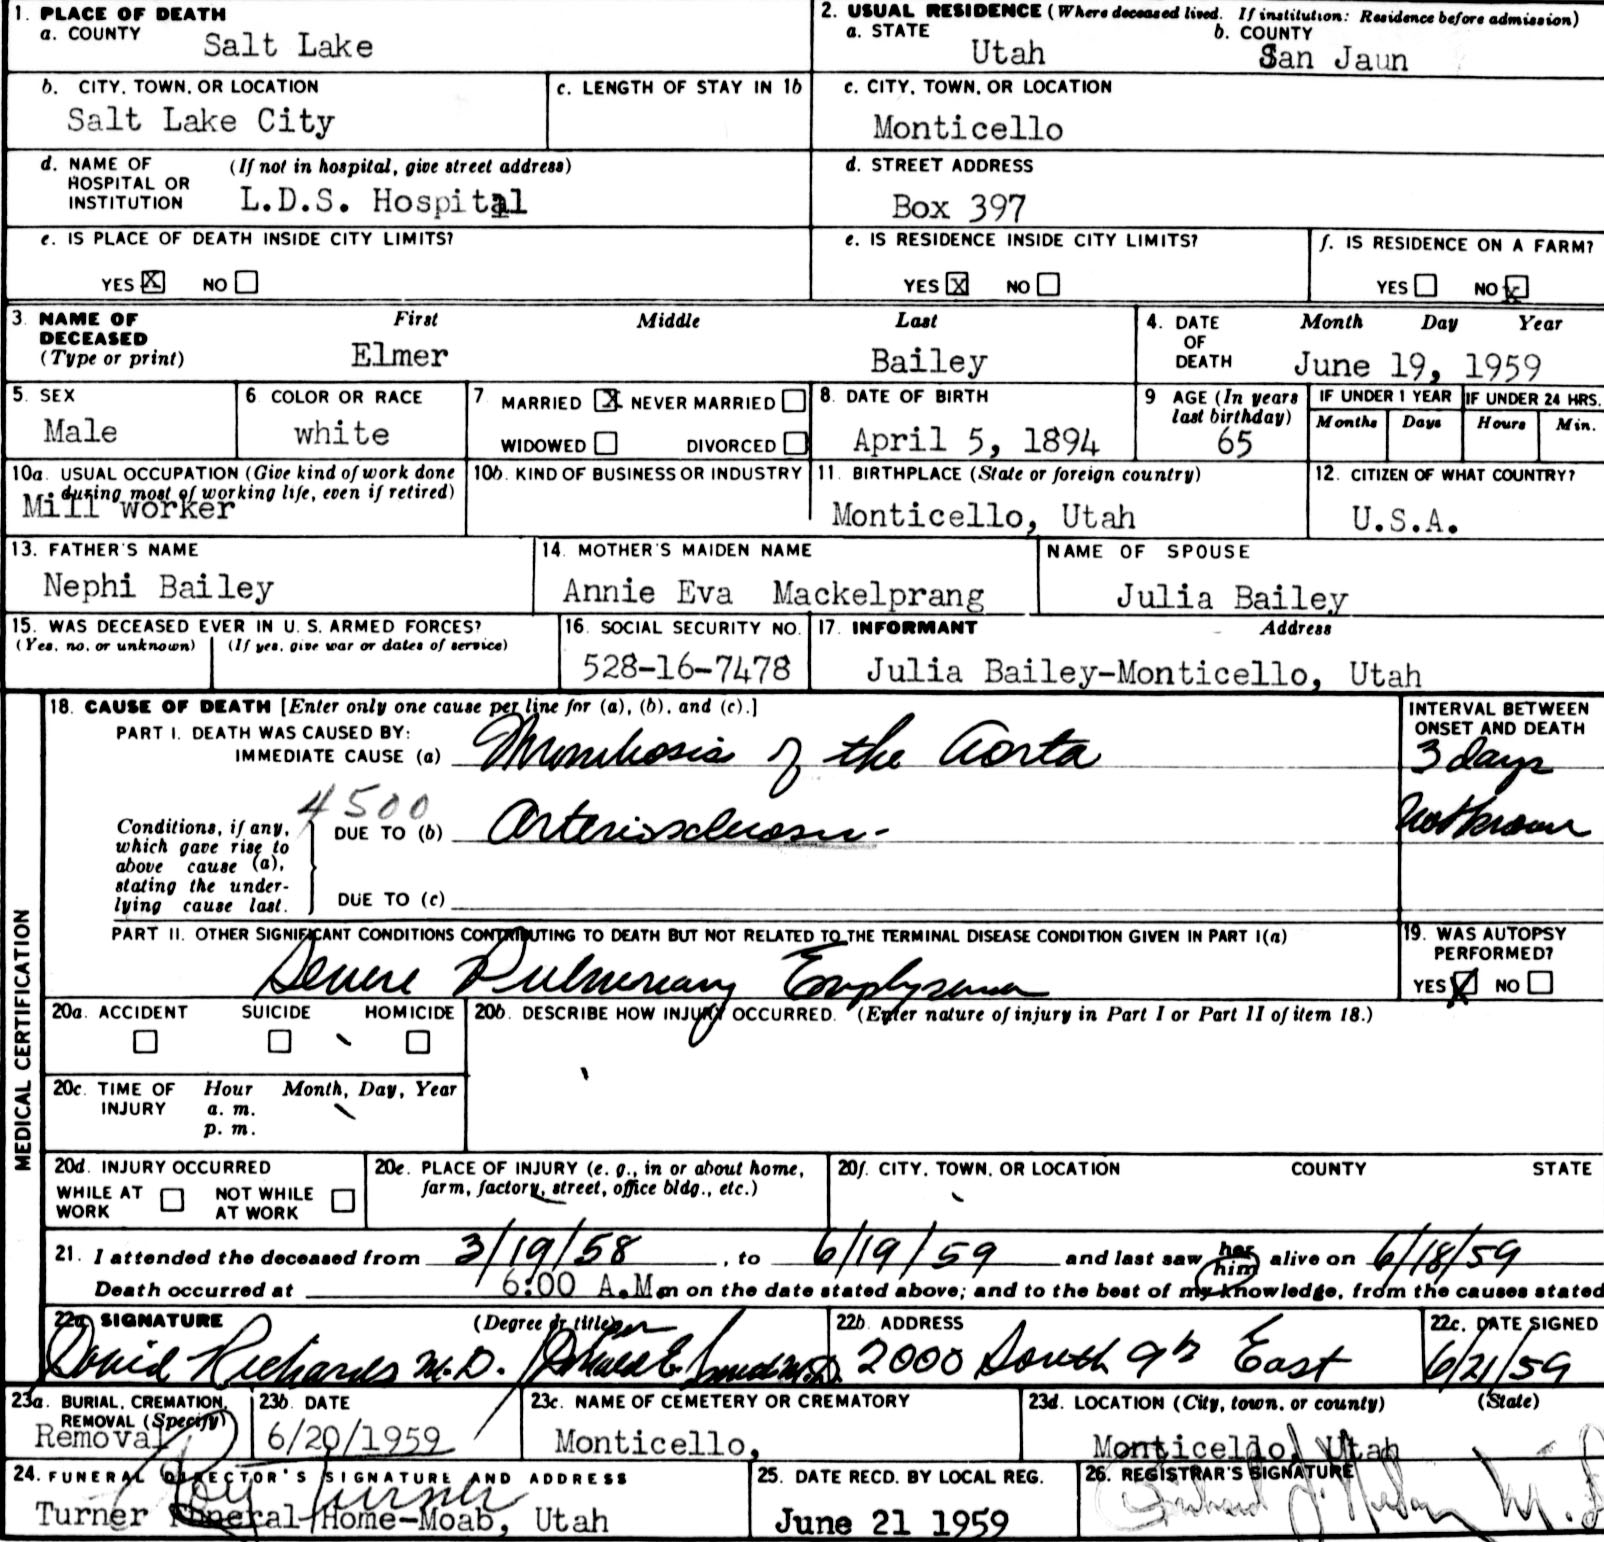 1. PLACE OF DEATH
a. COUNTY
Salt Lake
2. USUAL RESIDENCE (Where deceased lived. If institution: Residence before admission)
a. STATE
Utah
b. COUNTY
San Jaun
b. CITY, TOWN, OR LOCATION
Salt Lake City
c. LENGTH OF STAY IN 1b
c. CITY, TOWN, OR LOCATION
Monticello
d. NAME OF HOSPITAL OR INSTITUTION
(If not in hospital, give street address)
L.D.S. Hospital
d. STREET ADDRESS
Box 397
e. IS PLACE OF DEATH INSIDE CITY LIMITS?
YES X NO
e. IS RESIDENCE INSIDE CITY LIMITS?
YES X NO
f. IS RESIDENCE ON A FARM?
YES NO X
3. NAME OF DECEASED (Type or print)
First Middle Last
Elmer Bailey
4. DATE OF DEATH
Month Day Year
June 19, 1959
5. SEX
Male
6 COLOR OR RACE
white
7 MARRIED X NEVER MARRIED
WIDOWED DIVORCED
8. DATE OF BIRTH
April 5, 1894
9 AGE (In years last birthday)
65
IF UNDER 1 YEAR
Months Days
IF UNDER 24 HRS.
Hours Min.
10a. USUAL OCCUPATION (Give kind of work done
during most of working life, even if retired)
Mill worker
10b. KIND OF BUSINESS OR INDUSTRY
11. BIRTHPLACE (State or foreign country)
Monticello, Utah
12. CITIZEN OF WHAT COUNTRY?
U.S.A.
13. FATHER'S NAME
Nephi Bailey
14. MOTHER'S MAIDEN NAME
Annie Eva Mackelprang
NAME OF SPOUSE
Julia Bailey
15. WAS DECEASED EVER IN U.S. ARMED FORCES?
(Yes, no, or unknown) (If yes, give war or dates of service)
16. SOCIAL SECURITY NO.
528-16-7478
17. INFORMANT Address
Julia Bailey-Monticello, Utah
MEDICAL CERTIFICATION
18. CAUSE OF DEATH [Enter only one cause per line for (a), (b), and (c).]
PART I. DEATH WAS CAUSED BY:
IMMEDIATE CAUSE (a) Thrombosis of the Aorta
INTERVAL BETWEEN ONSET AND DEATH
3 days
4500
Conditions, if any,
which gave rise to
above cause (a),
stating the under-
lying cause last.
DUE TO (b) Arteriosclerosis-
Not known
DUE TO (c)
PART II. OTHER SIGNIFICANT CONDITIONS CONTRIBUTING TO DEATH BUT NOT RELATED TO THE TERMINAL DISEASE CONDITION GIVEN IN PART I(a)
Severe Pulmonary Emphysema
19. WAS AUTOPSY PERFORMED?
YES X NO
20a. ACCIDENT SUICIDE HOMICIDE
20b. DESCRIBE HOW INJURY OCCURRED. (Enter nature of injury in Part I or Part II of item 18.)
20c. TIME OF INJURY
Hour Month, Day, Year
a. m.
p. m.
20d. INJURY OCCURRED
WHILE AT WORK NOT WHILE AT WORK
20e. PLACE OF INJURY (e. g., in or about home,
farm, factory, street, office bldg., etc.)
20f. CITY, TOWN, OR LOCATION COUNTY STATE
21. I attended the deceased from 3/19/58, to 6/19/59 and last saw her him alive on 6/18/59
Death occurred at 6:00 A.M. m on the date stated above; and to the best of my knowledge, from the causes stated
22a SIGNATURE (Degree or title)
David Richards M.D.
22b. ADDRESS
2000 South 9th East
22c. DATE SIGNED
6/21/59
23a. BURIAL, CREMATION, REMOVAL (Specify)
Removal
23b. DATE
6/20/1959
23c. NAME OF CEMETERY OR CREMATORY
Monticello,
23d. LOCATION (City, town, or county) (State)
Monticello, Utah
24. FUNERAL DIRECTOR'S SIGNATURE AND ADDRESS
Roy Turner
Turner Funeral Home-Moab, Utah
25. DATE RECD. BY LOCAL REG.
June 21 1959
26. REGISTRAR'S SIGNATURE